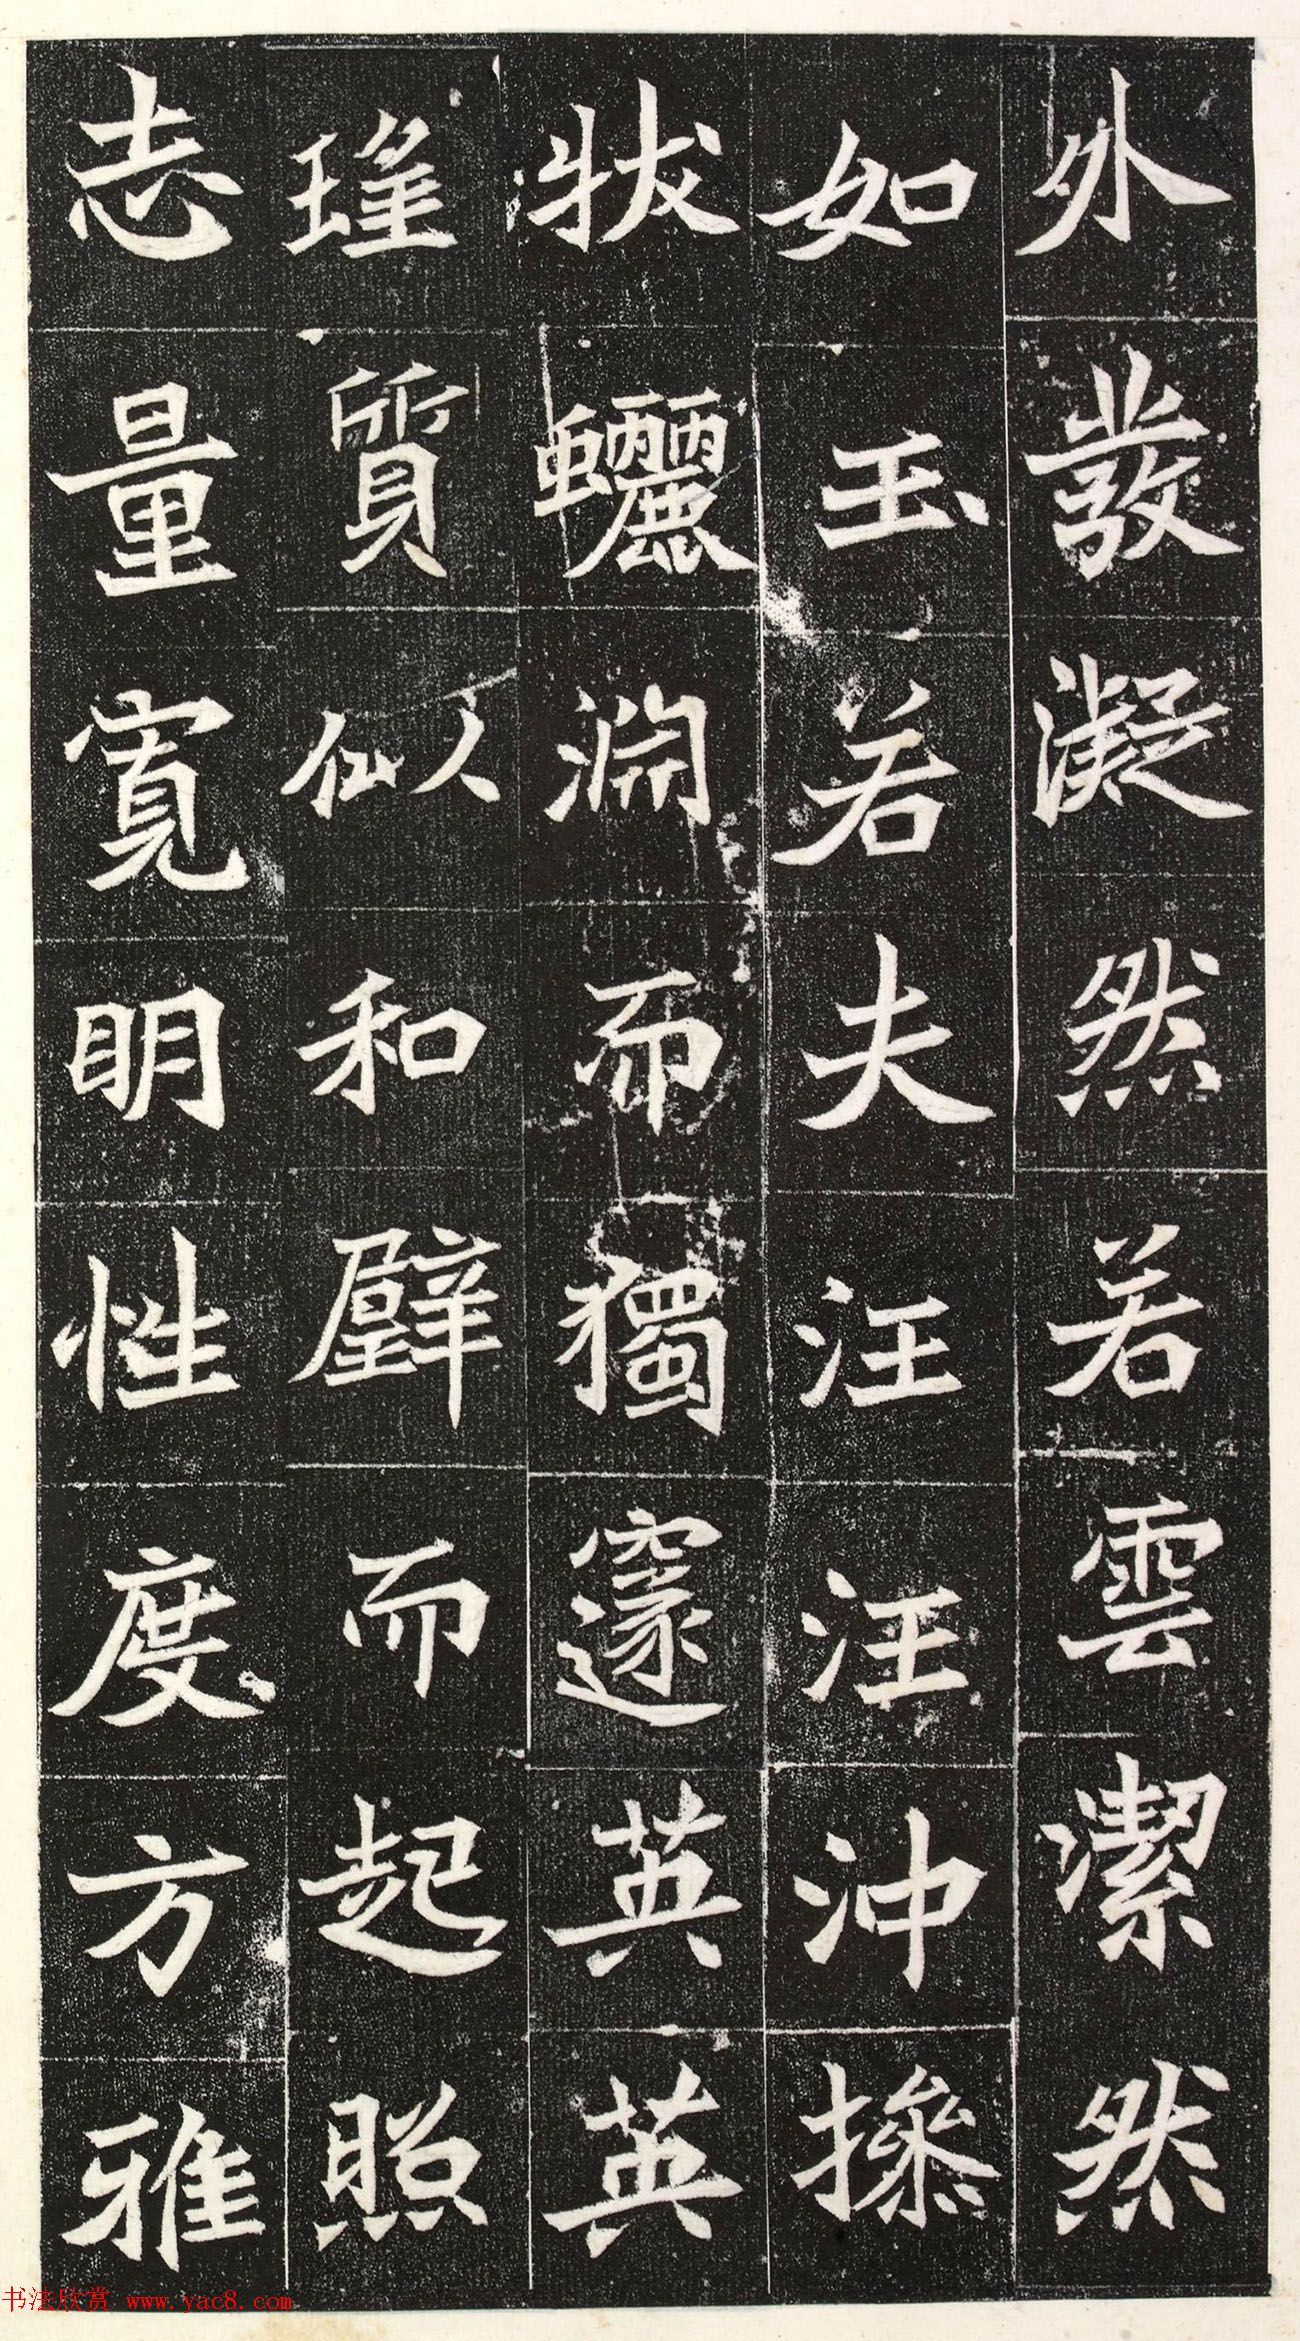 外發凝然若雲潔然
如玉若夫汪汪沖操
狀驪淵而獨邃英英
瑤質似和璧而起照
志量寬明性度方雅
书法欣赏 www.yac8.com